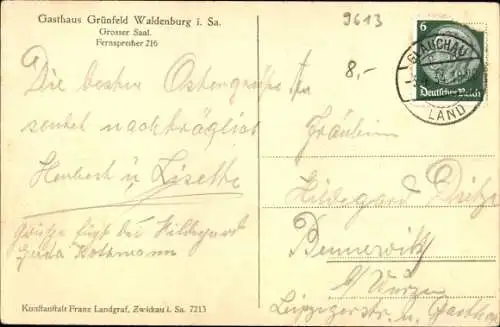 Gasthaus Grünfeld Waldenburg i. Sa.
Grosser Saal.
Fernsprecher 216
9613
8,-
6
Deutsches Reich
GLAUCHAU
LAND
Die besten Ostergrüße
sendet nachträglich
Herbert u Lisette
Grüße fügt bei Hildegard
Gerda
An
Fräulein
Hildegard
Bennewitz
b/ Wurzen
Leipzigerstr. u. Gasthof
Kunstanstalt Franz Landgraf, Zwickau i. Sa. 7213